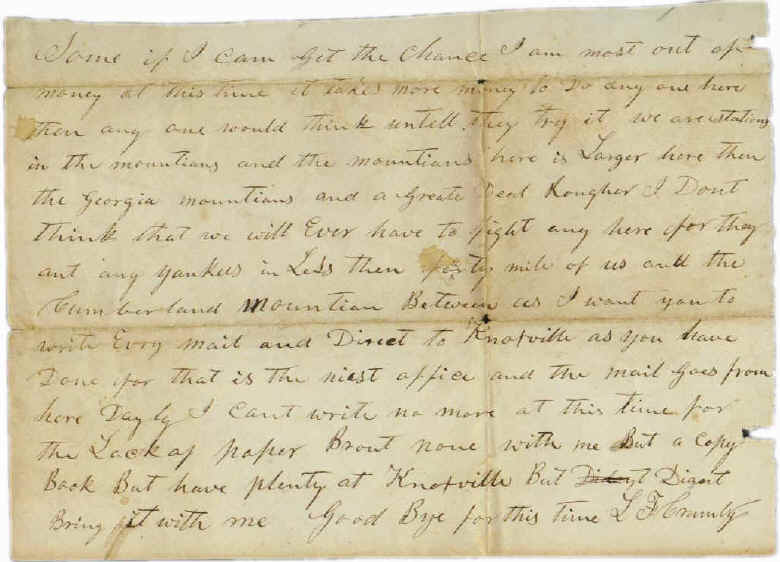 Some if I cam get the chance I am most out of
money at this time it takes more money to Do any one here
then any one would think untell they try it we are station
in the mountians and the mountians here is Larger here then
the georgia mountians and a Greate Deal Rougher I Dont
think that we will Ever have to fight any here for they
ant any yankees in Less then forty mile of us and the
Cumberland mountian Between us I want you to
write Evry mail and Direct to Knoxville as you have
Done for that is the niest office and the mail Goes from
here Dayly I Cant write no more at this time for
the Lack of paper Brout none with me But a Copy
Book But have plenty at Knoxville But Digent
Bring it with me Good Bye for this time L F Crumly